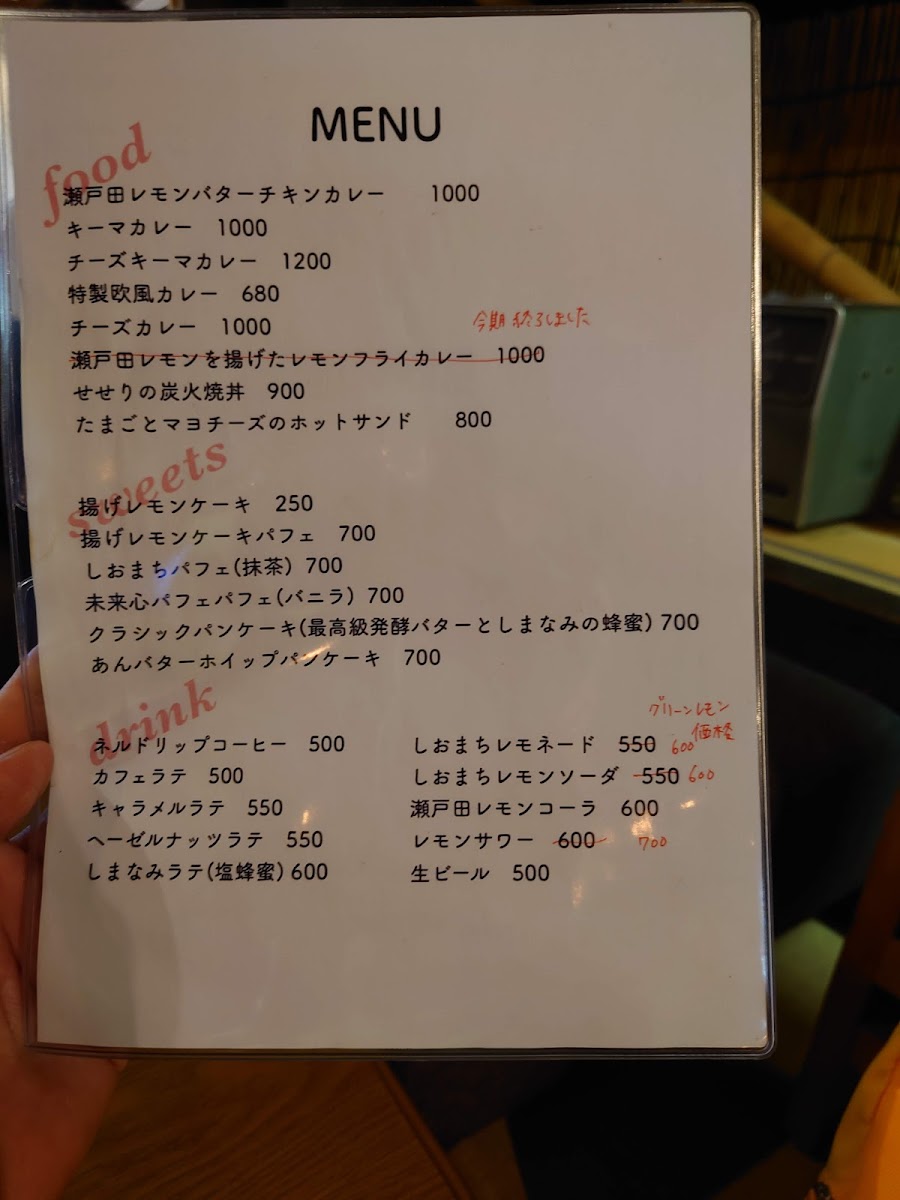 MENU
food
瀬戸田レモンバターチキンカレー 1000
キーマカレー 1000
チーズキーマカレー 1200
特製欧風カレー 680
チーズカレー 1000
今期終了しました
瀬戸田レモンを揚げたレモンフライカレー 1000
せせりの炭火焼丼 900
たまごとマヨチーズのホットサンド 800
sweets
揚げレモンケーキ 250
揚げレモンケーキパフェ 700
しおまちパフェ(抹茶) 700
未来心パフェパフェ(バニラ) 700
クラシックパンケーキ(最高級発酵バターとしまなみの蜂蜜) 700
あんバターホイップパンケーキ 700
drink
ネルドリップコーヒー 500
カフェラテ 500
キャラメルラテ 550
ヘーゼルナッツラテ 550
しまなみラテ(塩蜂蜜) 600
グリーンレモン
価格
しおまちレモネード 550 600
しおまちレモンソーダ 550 600
瀬戸田レモンコーラ 600
レモンサワー 600 700
生ビール 500